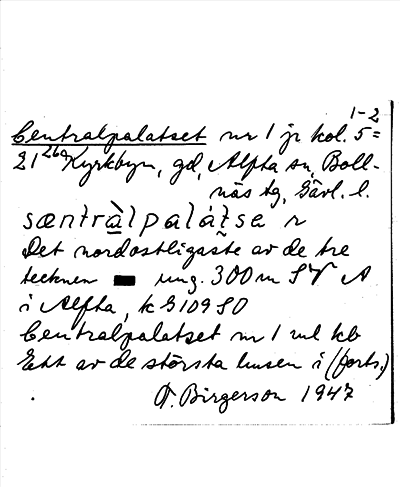 1-2
Centralpalatset nr 1 jr kol. 5=
21²⁶ᵃ Kyrkbyn, gd, Alfta sn, Boll-
näs tg, Gävl. l.
sæntràlpalátse n
Det nordostligaste av de tre
tecknen ▬ ung. 300 m SV A
i Alfta, k G109 SO
Centralpalatset nr 1 enl kb
Ett av de största husen i (forts.)
F. Birgerson 1947